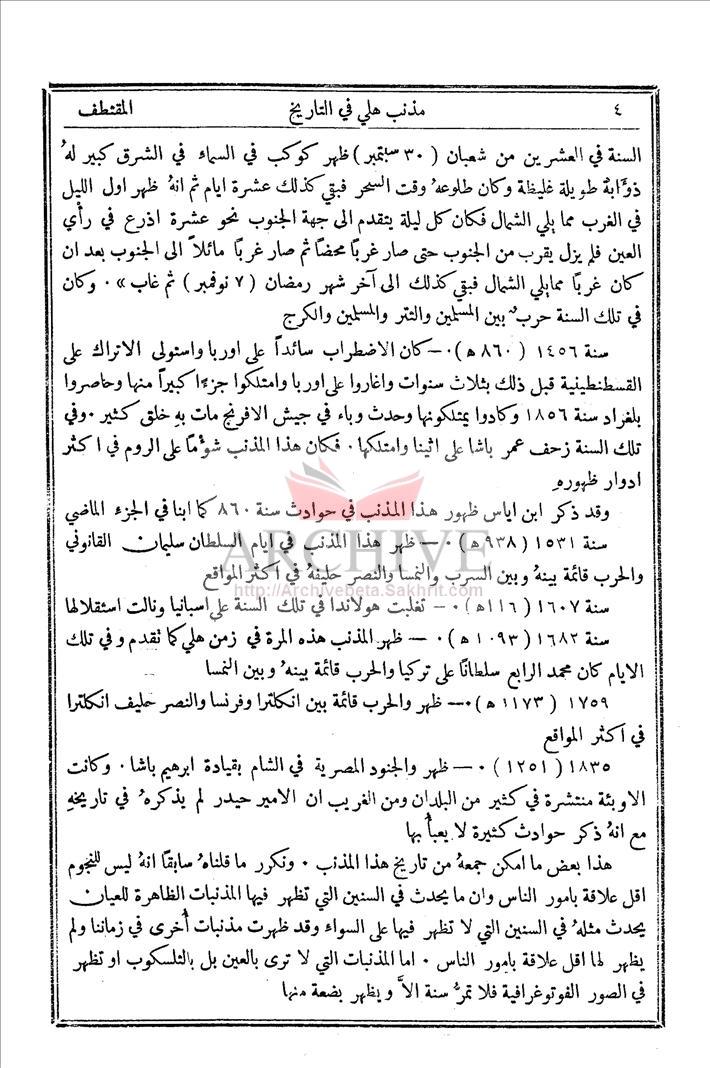 ٤ مذنب هلي في التاريخ المقتطف
السنة في العشرين من شعبان ( ٣٠ سبتمبر ) ظهر كوكب في السماء في الشرق كبير لهُ
ذؤابة طويلة غليظة وكان طلوعهُ وقت السحر فبقي كذلك عشرة ايام ثم انهُ ظهر اول الليل
في الغرب مما يلي الشمال فكان كل ليلة يتقدم الى جهة الجنوب نحو عشرة اذرع في رأي
العين فلم يزل يقرب من الجنوب حتى صار غربًا محضًا ثم صار غربًا مائلاً الى الجنوب بعد ان
كان غربًا ممايلي الشمال فبقي كذلك الى آخر شهر رمضان ( ٧ نوفمبر ) ثم غاب » ٠ وكان
في تلك السنة حرب بين المسلمين والتتر والمسلمين والكرج
سنة ١٤٥٦ ( ٨٦٠ ه ) ٠ — كان الاضطراب سائداً على اوربا واستولى الاتراك على
القسطنطينية قبل ذلك بثلاث سنوات واغاروا على اوربا وامتلكوا جزءًا كبيراً منها وحاصروا
بلغراد سنة ١٨٥٦ وكادوا يمتلكونها وحدث وباء في جيش الافرنج مات بهِ خلق كثير ٠ وفي
تلك السنة زحف عمر باشا على اثينا وامتلكها ٠ فكان هذا المذنب شؤمًا على الروم في اكثر
ادوار ظهورهِ
وقد ذكر ابن اياس ظهور هذا المذنب في حوادث سنة ٨٦٠ كما ابنا في الجزء الماضي
سنة ١٥٣١ ( ٩٣٨ ه ) ٠ — ظهر هذا المذنب في ايام السلطان سليمان القانوني
ARCHIVE
والحرب قائمة بينهُ وبين السرب والنمسا والنصر حليفهُ في اكثر المواقع
http://Archivebeta.Sakhrit.com
سنة ١٦٠٧ ( ١١٦ ه ) ٠ — تغلبت هولاندا في تلك السنة على اسبانيا ونالت استقلالها
سنة ١٦٨٢ ( ١٠٩٣ ه ) ٠ — ظهر المذنب هذه المرة في زمن هلي كما نقدم وفي تلك
الايام كان محمد الرابع سلطانًا على تركيا والحرب قائمة بينهُ وبين النمسا
١٧٥٩ ( ١١٧٣ ه ) ٠ — ظهر والحرب قائمة بين انكلترا وفرنسا والنصر حليف انكلترا
في اكثر المواقع
١٨٣٥ ( ١٢٥١ ) ٠ — ظهر والجنود المصرية في الشام بقيادة ابرهيم باشا ٠ وكانت
الاوبئة منتشرة في كثير من البلدان ومن الغريب ان الامير حيدر لم يذكرهُ في تاريخهِ
مع انهُ ذكر حوادث كثيرة لا يعبأ بها
هذا بعض ما امكن جمعهُ من تاريخ هذا المذنب ٠ ونكرر ما قلناهُ سابقًا انهُ ليس للنجوم
اقل علاقة بامور الناس وان ما يحدث في السنين التي تظهر فيها المذنبات الظاهرة للعيان
يحدث مثلهُ في السنين التي لا تظهر فيها على السواء وقد ظهرت مذنبات أخرى في زماننا ولم
يظهر لها اقل علاقة بامور الناس ٠ اما المذنبات التي لا ترى بالعين بل بالتلسكوب او تظهر
في الصور الفوتوغرافية فلا تمرُّ سنة الاَّ ويظهر بضعة منها